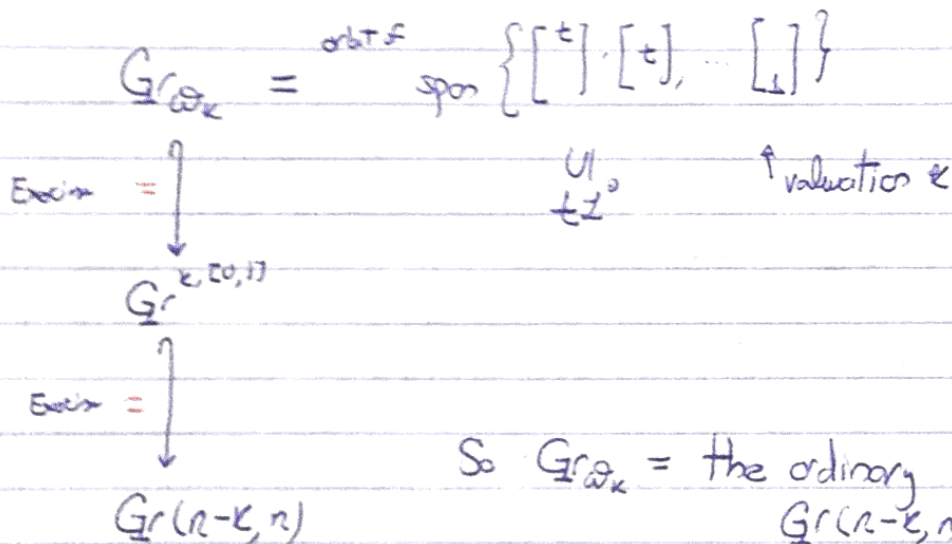 Gr_{ω_k} = orbit of span { [t], [t], ... [1] }
UI
tL_0
↑ valuation k
Exercise =
Gr^{k,[0,1]}
Exercise =
So Gr_{ω_k} = the ordinary
Gr(n-k,n)
Gr(n-k,n